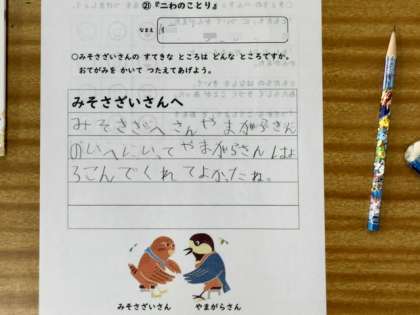 ㉑『二わのことり』
なまえ
○みそさざいさんの すてきな ところは どんな ところですか。
おてがみを かいて つたえてあげよう。
みそさざいさんへ
みそさざいへさんやまがらさん
のいへにいってやまがらさんはよ
ろこんでくれてよかたね。
みそさざいさん
やまがらさん